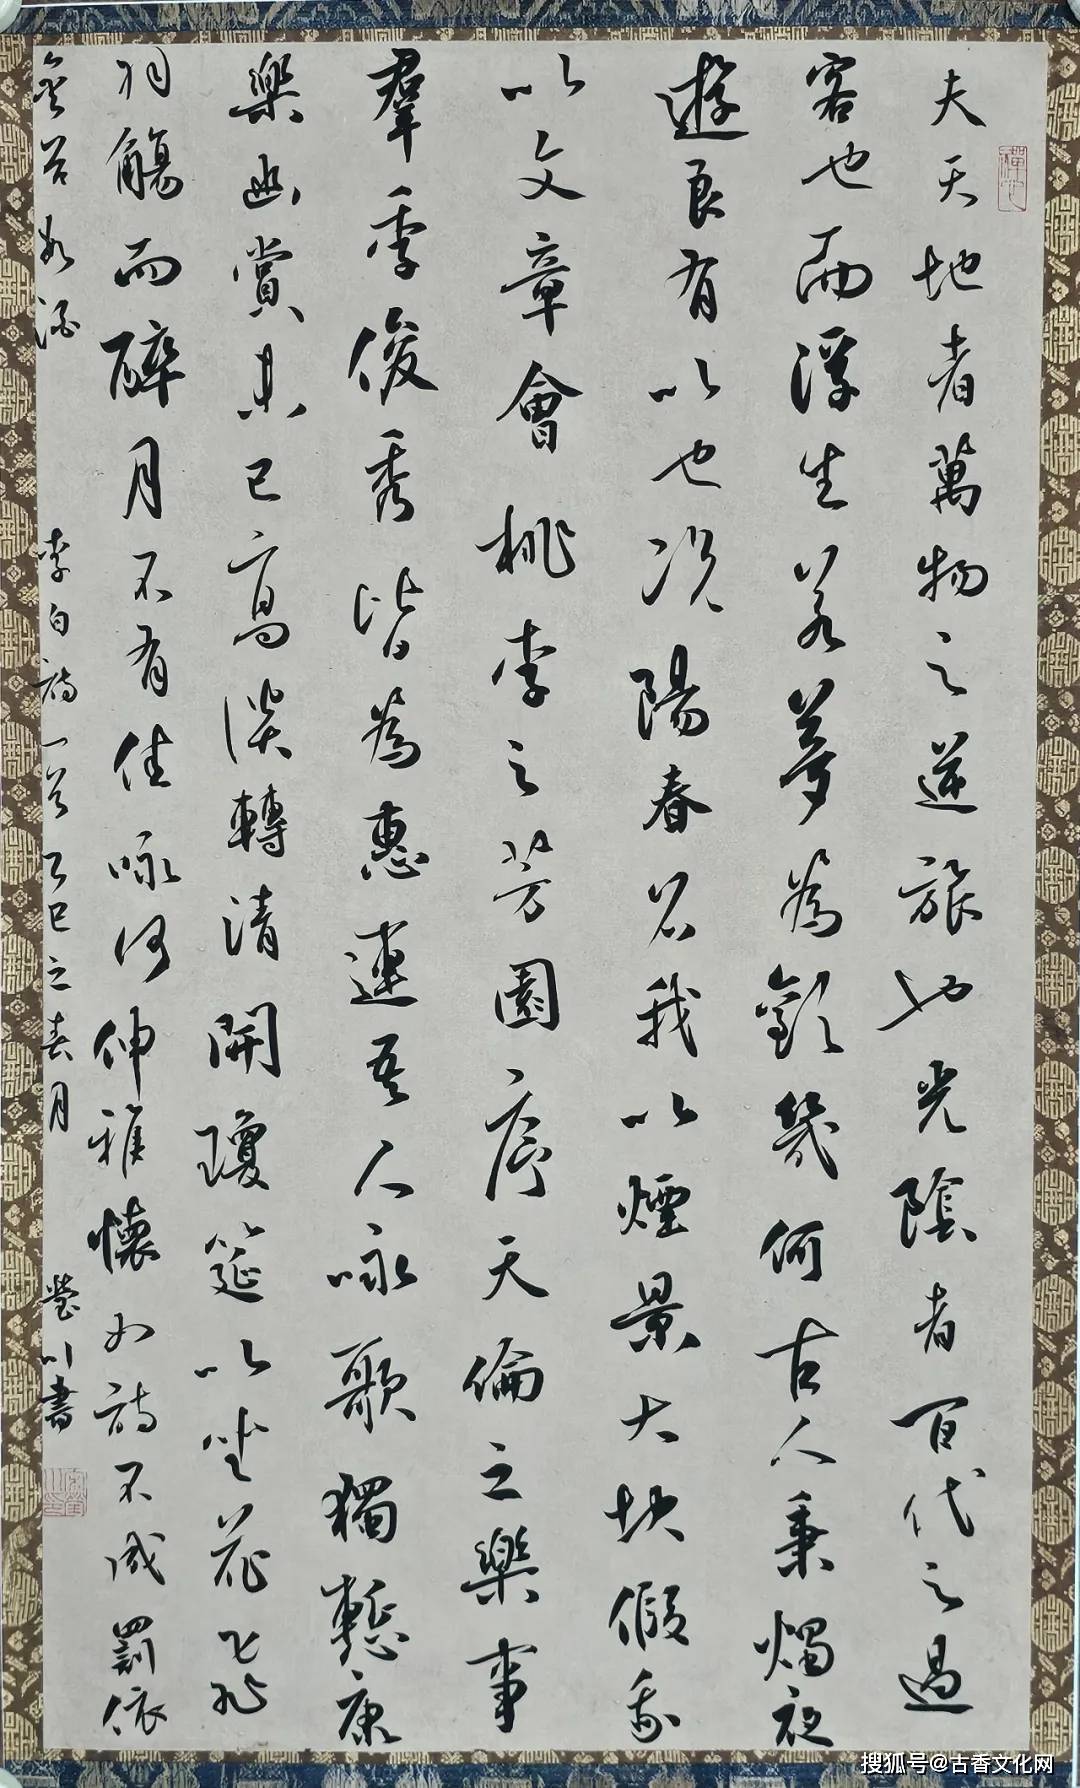 夫天地者萬物之逆旅也光陰者百代之過
客也而浮生若夢為歡幾何古人秉燭夜
遊良有以也況陽春召我以煙景大塊假我
以文章會桃李之芳園序天倫之樂事
羣季俊秀皆為惠連吾人咏歌獨慙康
樂幽賞未已高談轉清開瓊筵以坐花飛
羽觴而醉月不有佳咏何伸雅懷如詩不成罰依
金谷数酒 李白詩一首 乙巳之春月 書
搜狐号@古香文化网